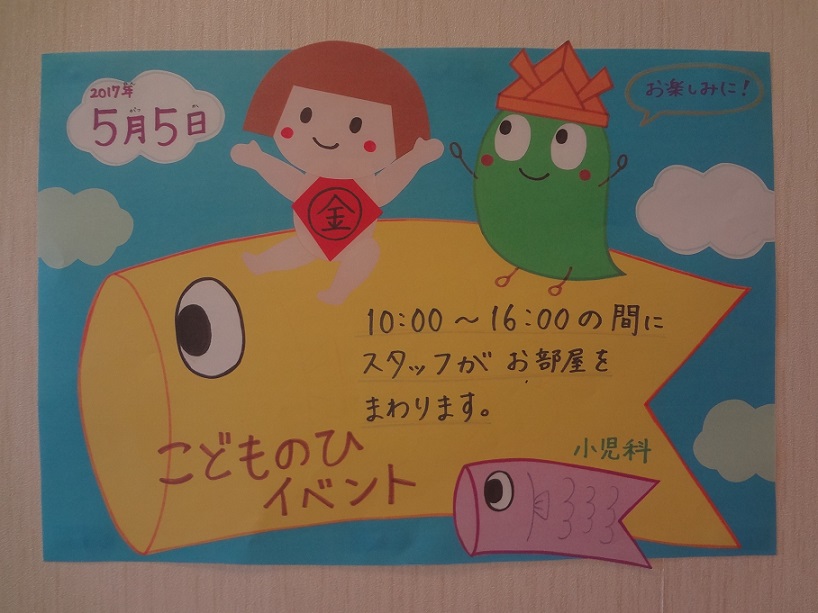 2017年
5月5日
お楽しみに!
金
10:00～16:00の間に
スタッフが お部屋を
まわります。
こどものひ
イベント
小児科